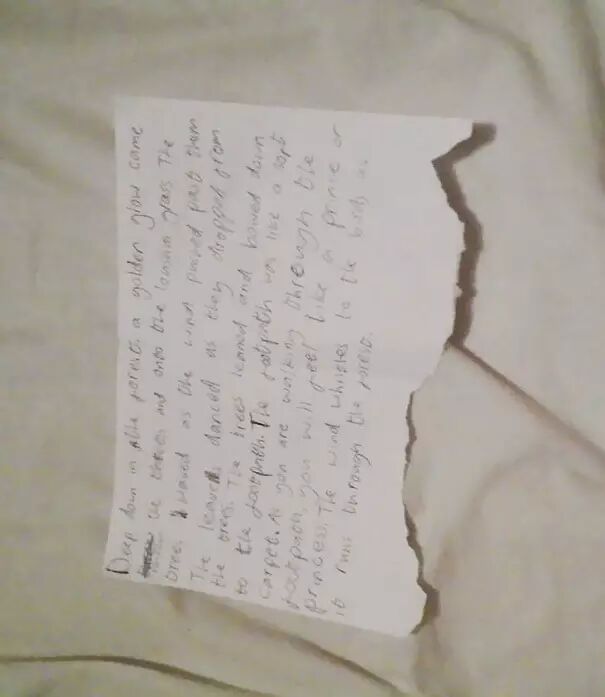 Deep down in the forest a golden glow came
the and onto the grass The
trees waved as the wind pushed past them
The leaves danced as they dropped from
the trees. The trees leaned and bowed down
to the footpath. The footpath was like a soft
carpet. As you are walking through the
footpath, you will feel like a prince or
princess. The wind whistles to the birds as
it runs through the forest.